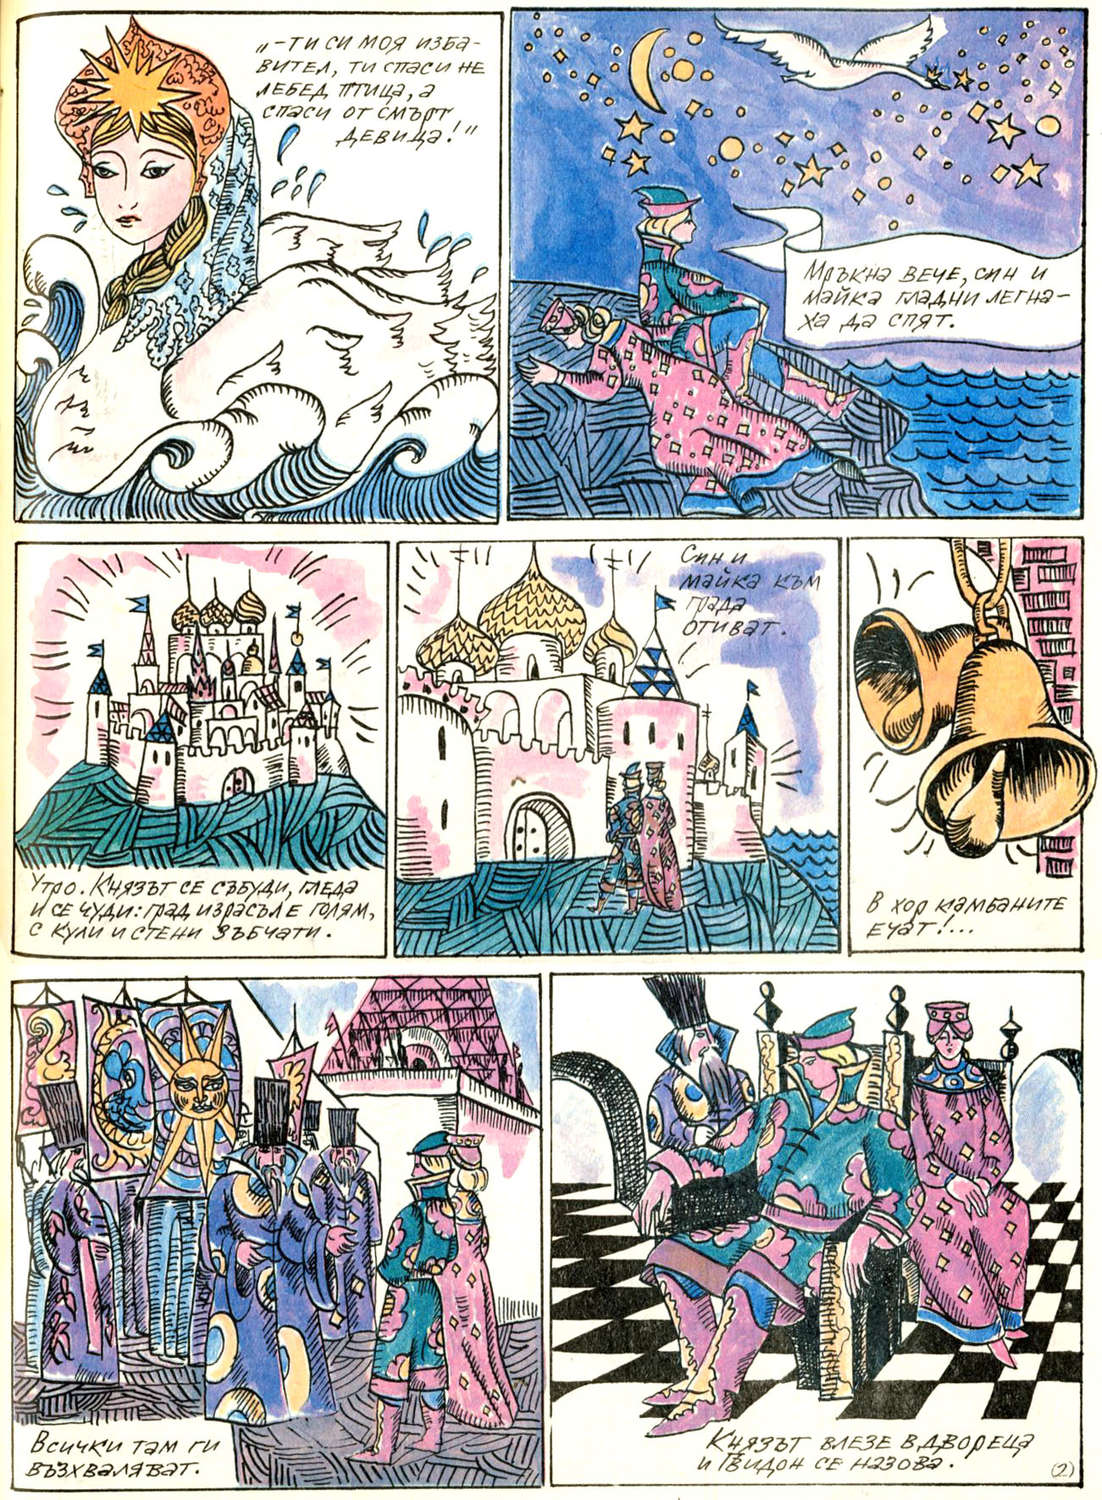 „-ТИ СИ МОЯ ИЗБА-
ВИТЕЛ, ТИ СПАСИ НЕ
ЛЕБЕД ПТИЦА, А
СПАСИ ОТ СМЪРТ
ДЕВИЦА!"
МРЪКНА ВЕЧЕ, СИН И
МАЙКА ГЛАДНИ ЛЕГНА-
ХА ДА СПЯТ.
УТРО. КНЯЗЪТ СЕ СЪБУДИ, ГЛЕДА
И СЕ ЧУДИ: ГРАД ИЗРАСЪЛ Е ГОЛЯМ,
С КУЛИ И СТЕНИ ЗЪБЧАТИ.
СИН И
МАЙКА КЪМ
ГРАДА
ОТИВАТ.
В ХОР КАМБАНИТЕ
ЕЧАТ!...
ВСИЧКИ ТАМ ГИ
ВЪЗХВАЛЯВАТ.
КНЯЗЪТ ВЛЕЗЕ В ДВОРЕЦА
И ГВИДОН СЕ НАЗОВА.
(2)